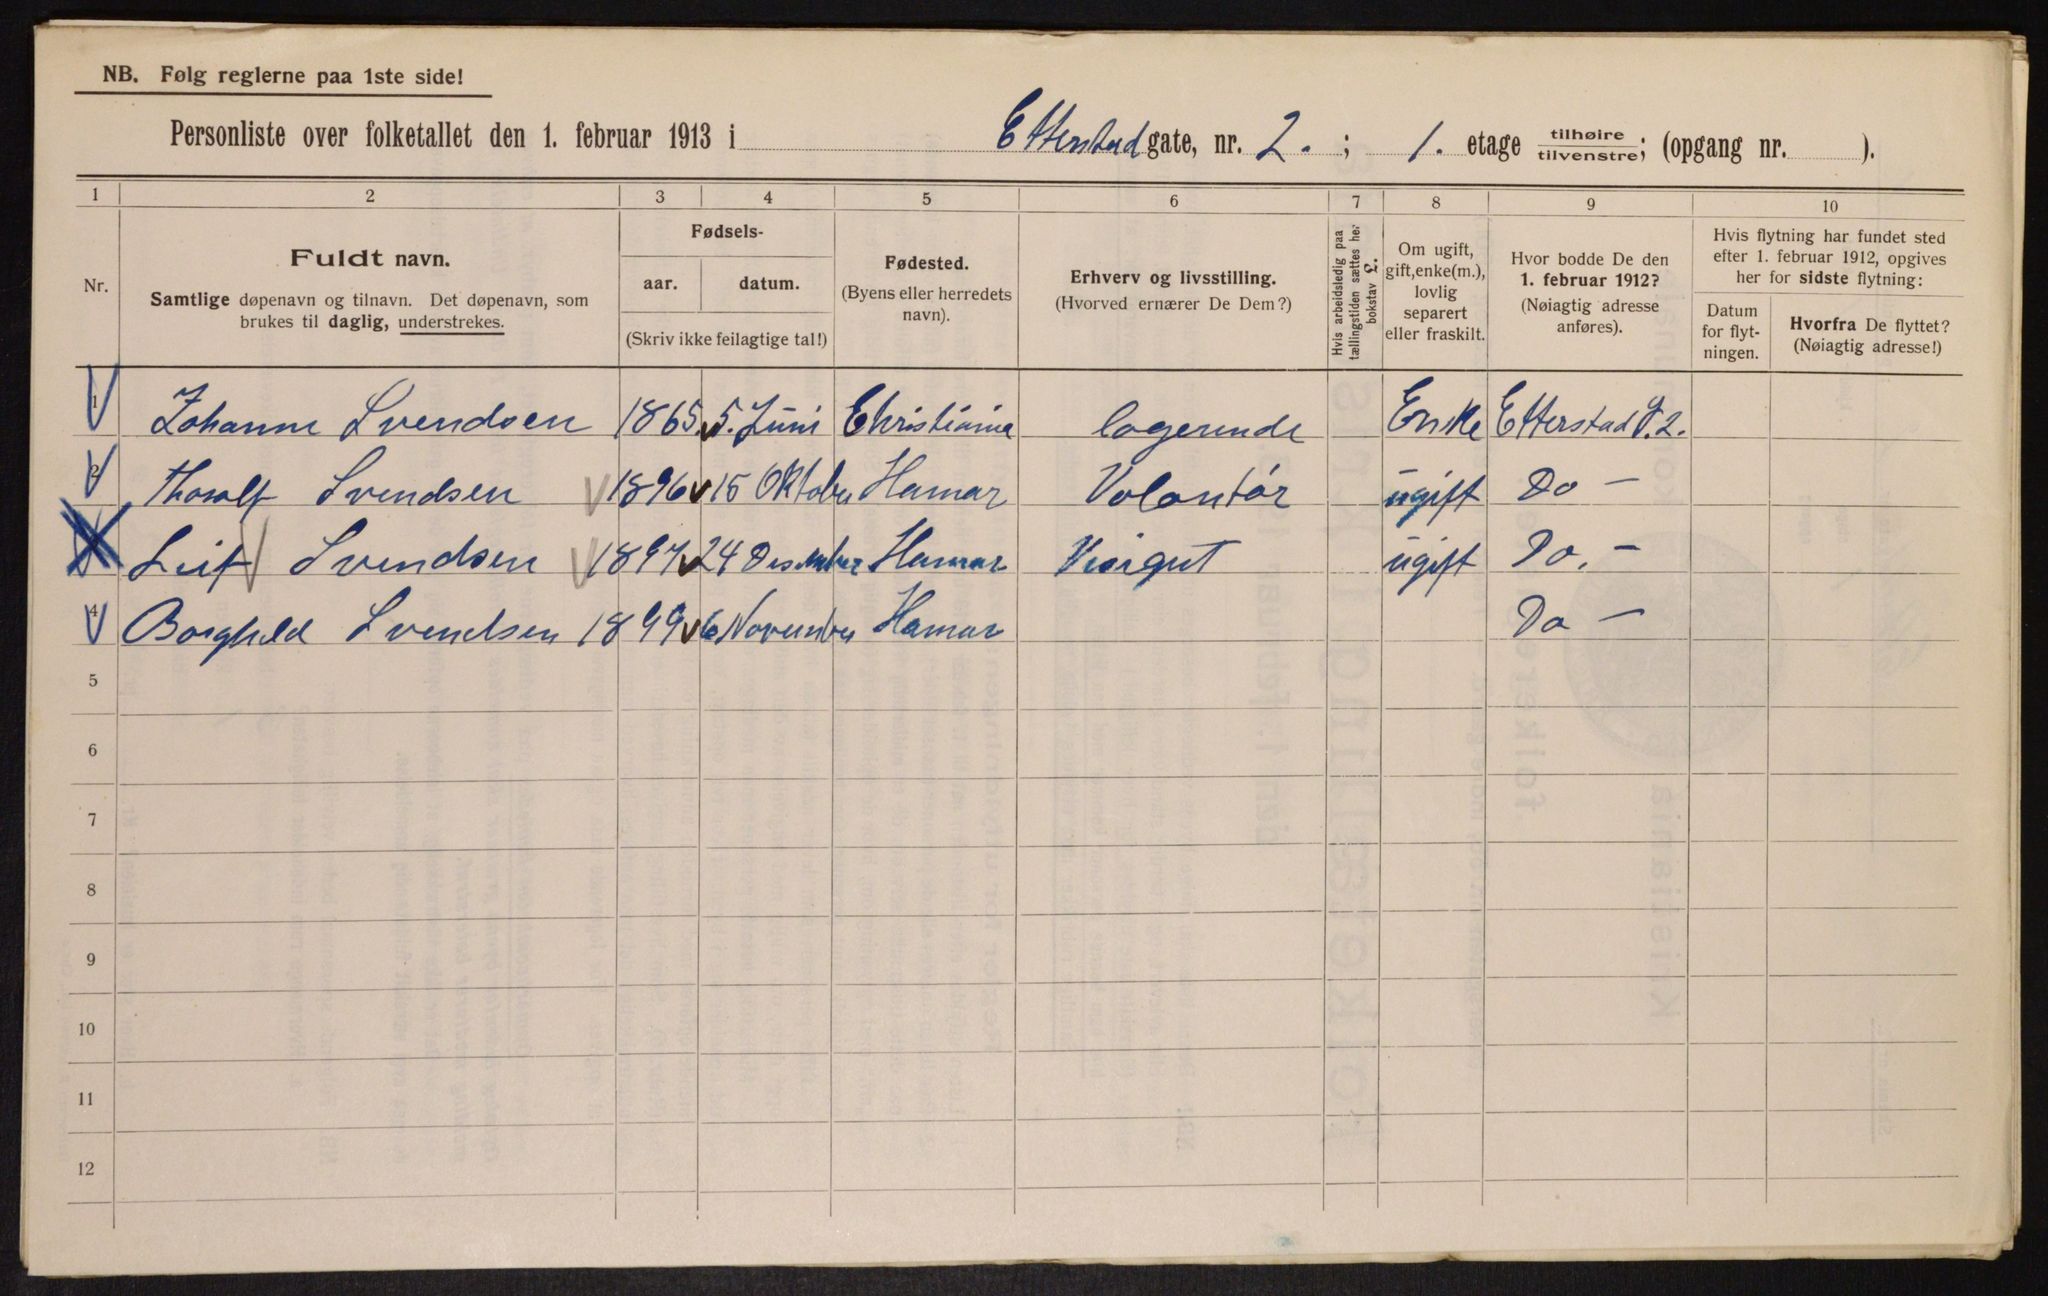 NB. Følg reglerne paa 1ste side!
Personliste over folketallet den 1. februar 1913 i Etterstad gate, nr. 2. ; 1. etage tilhøire tilvenstre; (opgang nr. ).
1 2 3 4 5 6 7 8 9 10
Nr.
Fuldt navn.
Samtlige døpenavn og tilnavn. Det døpenavn, som
brukes til daglig, understrekes.
Fødsels-
aar. datum.
(Skriv ikke feilagtige tal!)
Fødested.
(Byens eller herredets
navn).
Erhverv og livsstilling.
(Hvorved ernærer De Dem?)
Hvis arbeidsledig paa
tællingstiden sættes her
bokstav £.
Om ugift,
gift, enke(m.),
lovlig
separert
eller fraskilt.
Hvor bodde De den
1. februar 1912?
(Nøiagtig adresse
anføres).
Hvis flytning har fundet sted
efter 1. februar 1912, opgives
her for sidste flytning:
Datum
for flyt-
ningen.
Hvorfra De flyttet?
(Nøiagtig adresse!)
1 Johanne Svendsen 1865 5. Juni Christiania logerende Enke Etterstad g. 2.
2 Thoralf Svendsen 1896 15 Oktober Hamar Volontør ugift Do -
Leif Svendsen 1897 24 Desember Hamar Visergut ugift Do. -
4 Borghild Svendsen 1899 6 November Hamar Do -
5
6
7
8
9
10
11
12